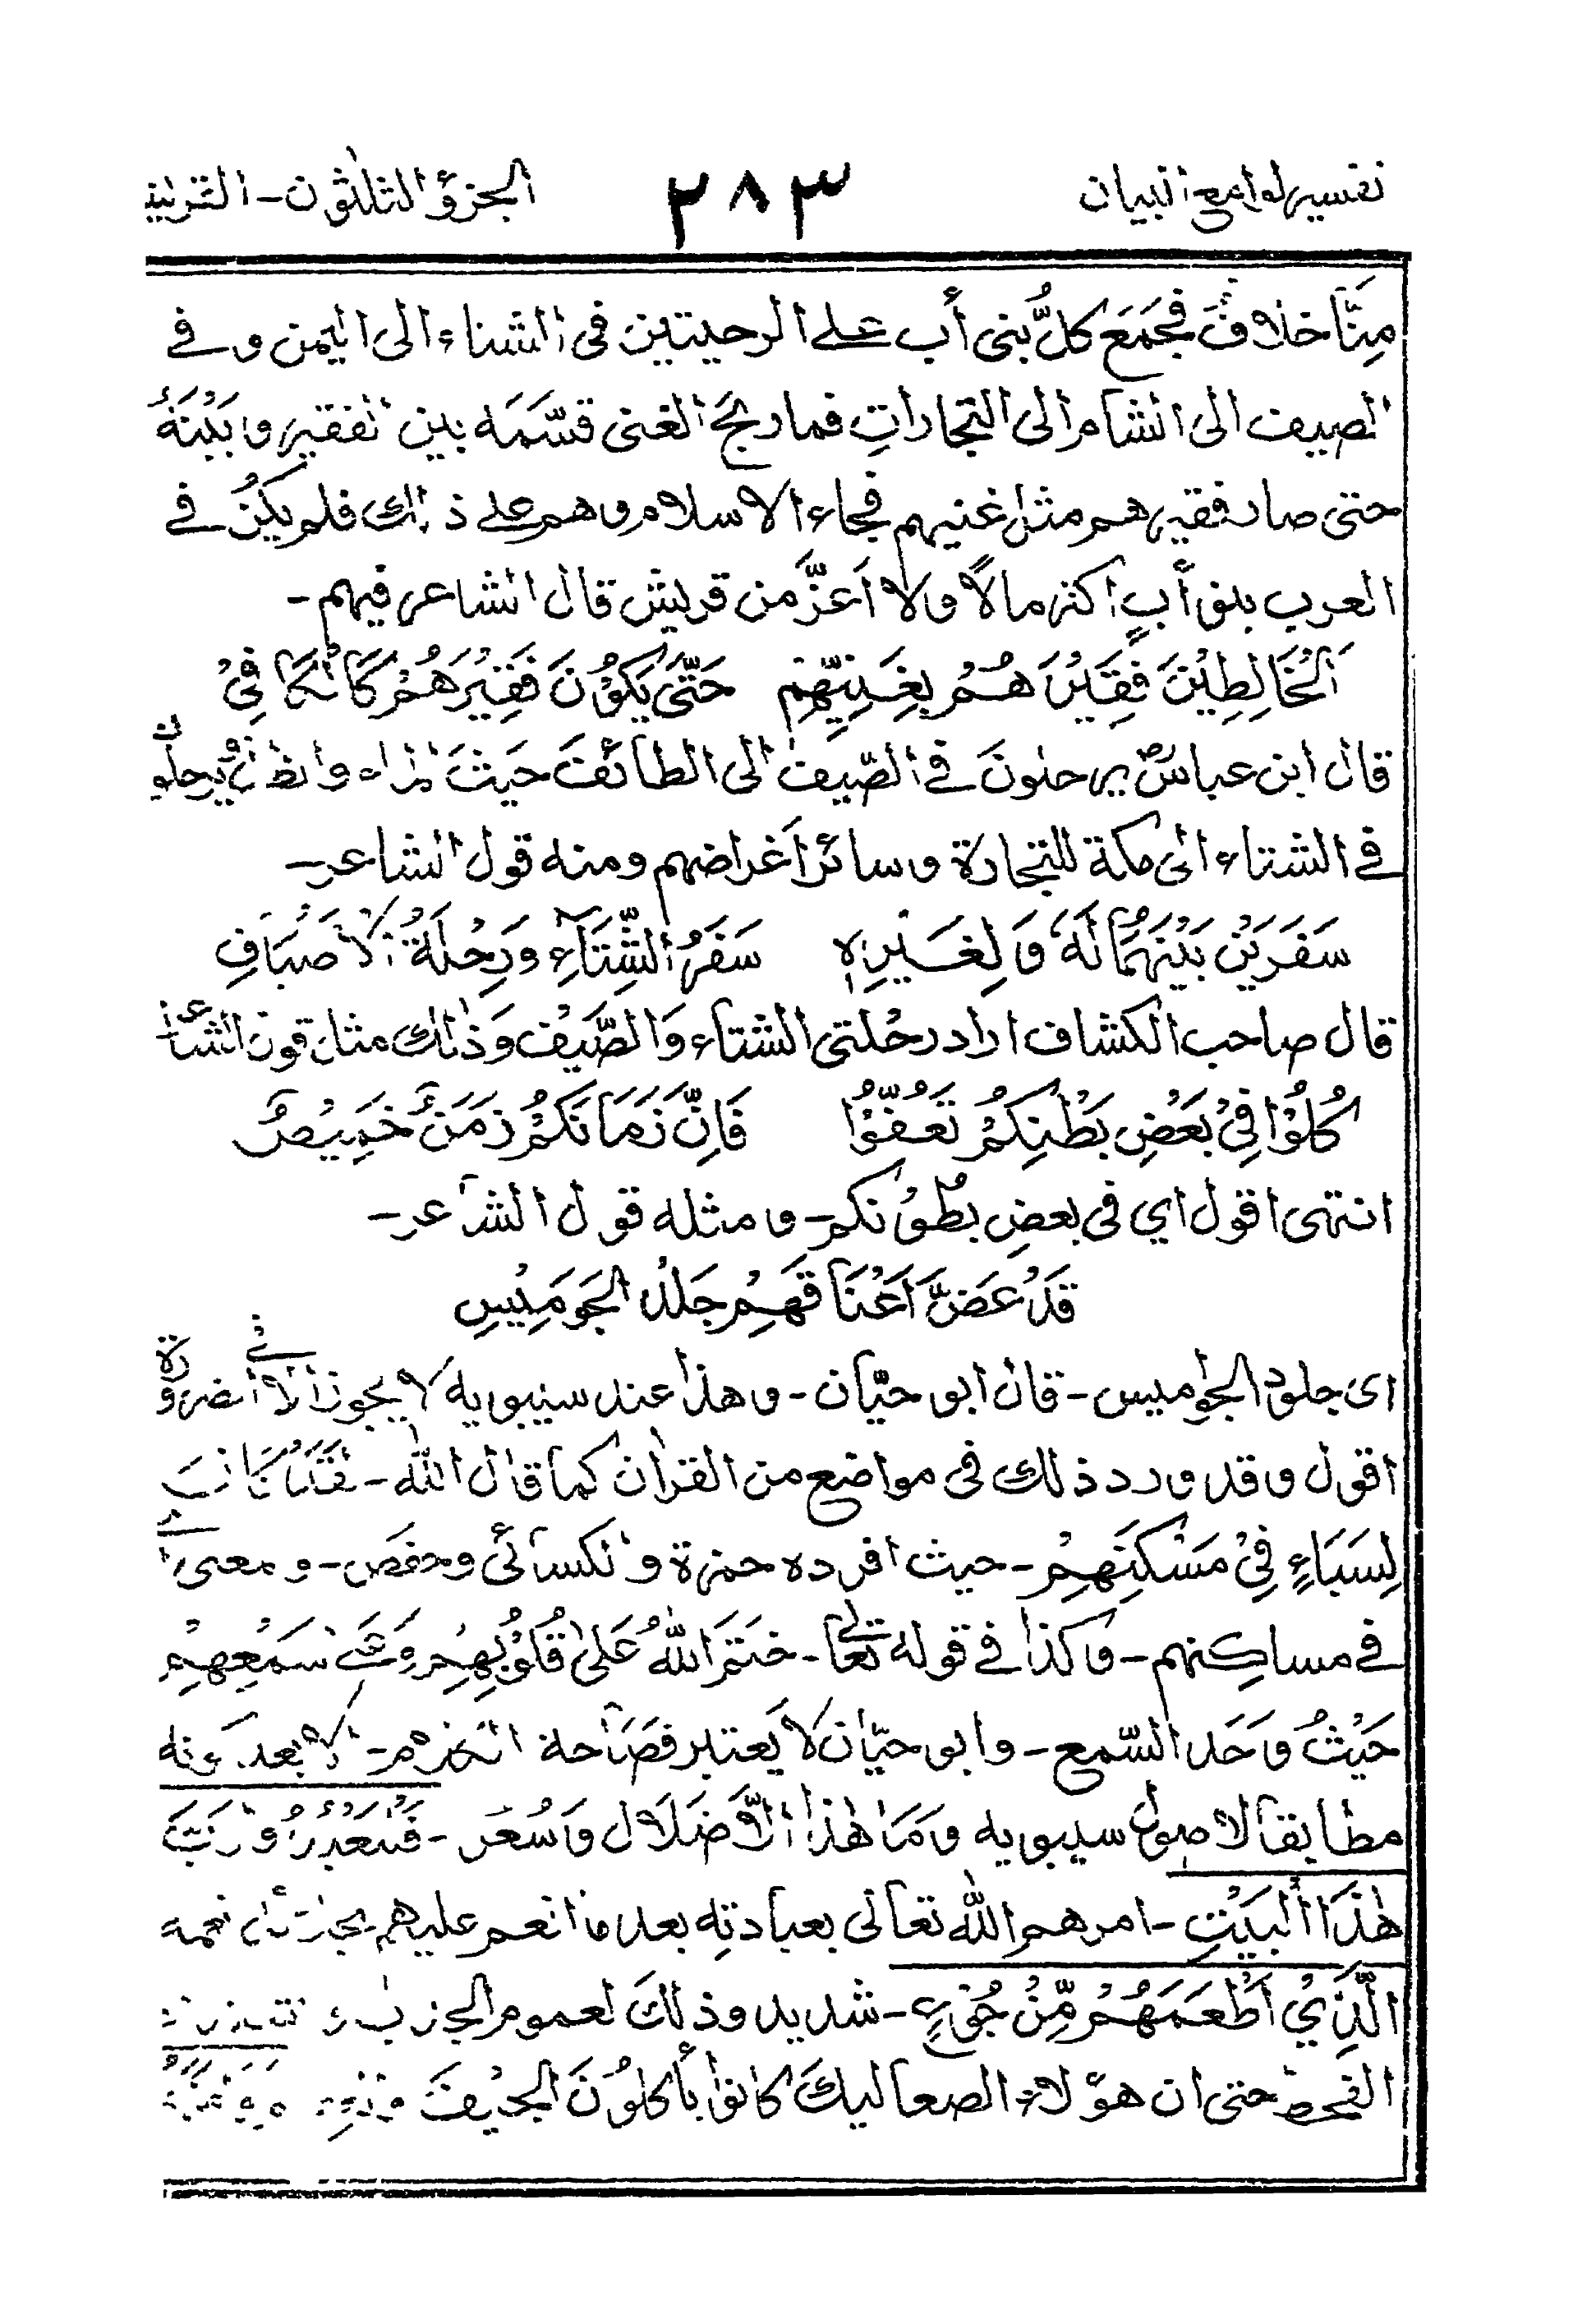 تفسير لوامع البيان ٢٨٣ الجزؤ الثلثون - القريش
مِنَّا خلافٌ فجَمَعَ كلُّ بنى أب على الرحيلتين فى الشتاء الى اليمن و فى
الصيف الى الشام الى التجاراتِ فما ربحَ الغنى قسَّمَه بين الفقير و بَيْنَهُ
حتى صار فقيرهم مثل غنيهم فجاء الاسلام و هم على ذالك فلم يكنُ فى
العرب بنو أبٍ اكثر مالًا ولا اَعزَّ من قريش قال الشاعر فيهم -
اَلْخَالِطِيْنَ فَقِيْرَ هُمْ بِغَنِيِّهِمْ حَتَّى يَكُوْنَ فَقِيْرَهُمْ كَالْكَا فِىْ
قال ابن عباسؓ يرحلونَ فى الصَّيف الى الطائفَ حَيثَ الماء و الظل و يرحلون
فى الشتاء الى مكة للتجارة و سائر اَغراضهم و منه قول الشاعر -
سَفَرَيْنِ بَيْنَهُمَا لَهٗ وَ لِغَيْرِهٖ سَفَرُ الشِّتَآءِ وَرِحْلَةُ الْاَصْيَافِ
قال صاحب الكشاف اراد رحْلتى الشتاء وَالصَّيْف وَذٰلك مثل قول الشاعر
كُلُوْا فِىْ بَعْضِ بَطْنِكُمْ تَعُفُّوْا فَاِنَّ زَمَانَكُمْ زَمَنٌ خَمِيْصٌ
انتهى اقول اي فى بعضِ بُطُوْنكم - و مثله قول الشاعر -
قَدْ عَضَّ اَعْنَاقَهُمْ جَلْدُ الجَوَمِيْسِ
اى جلود الجواميس - قال ابو حيّان - و هذا عند سيبويه لا يجوز الا فى الضرورة
اقول و قد ورد ذلك فى مواضع من القراٰن كما قال اللّٰه - لَقَدْ كَانَ
لِسَبَاءٍ فِىْ مَسْكَنِهِمْ - حيث افرده حمزة و الكسائى و حفص - و معنى
فى مساكنهم - و كذا فى قوله تعالى - خَتَمَ اللّٰهُ عَلىٰ قُلُوْبِهِمْ وَ عَلىٰ سَمْعِهِمْ
حَيْثُ وَحَد السّمع - و ابو حيّان لا يَعتبر فصَاحة الكلام - الا بعد كونه
مطابقا لاصول سيبويه وَ مَا هٰذا الَّا ضَلَال وَسُعُر - فَلْيَعْبُدُوْا رَبَّ
هٰذَا الْبَيْتِ - امرهم اللّٰه تعالى بعبادتِه بعد ما انعم عليهم نعمه
الَّذِيْ اَطْعَمَهُمْ مِّنْ جُوْعٍ - شديد و ذلكَ لعموم الجدب و
القحط حتى ان هؤلاء الصعاليكَ كانوا يأكلوُنَ الجيْفَ